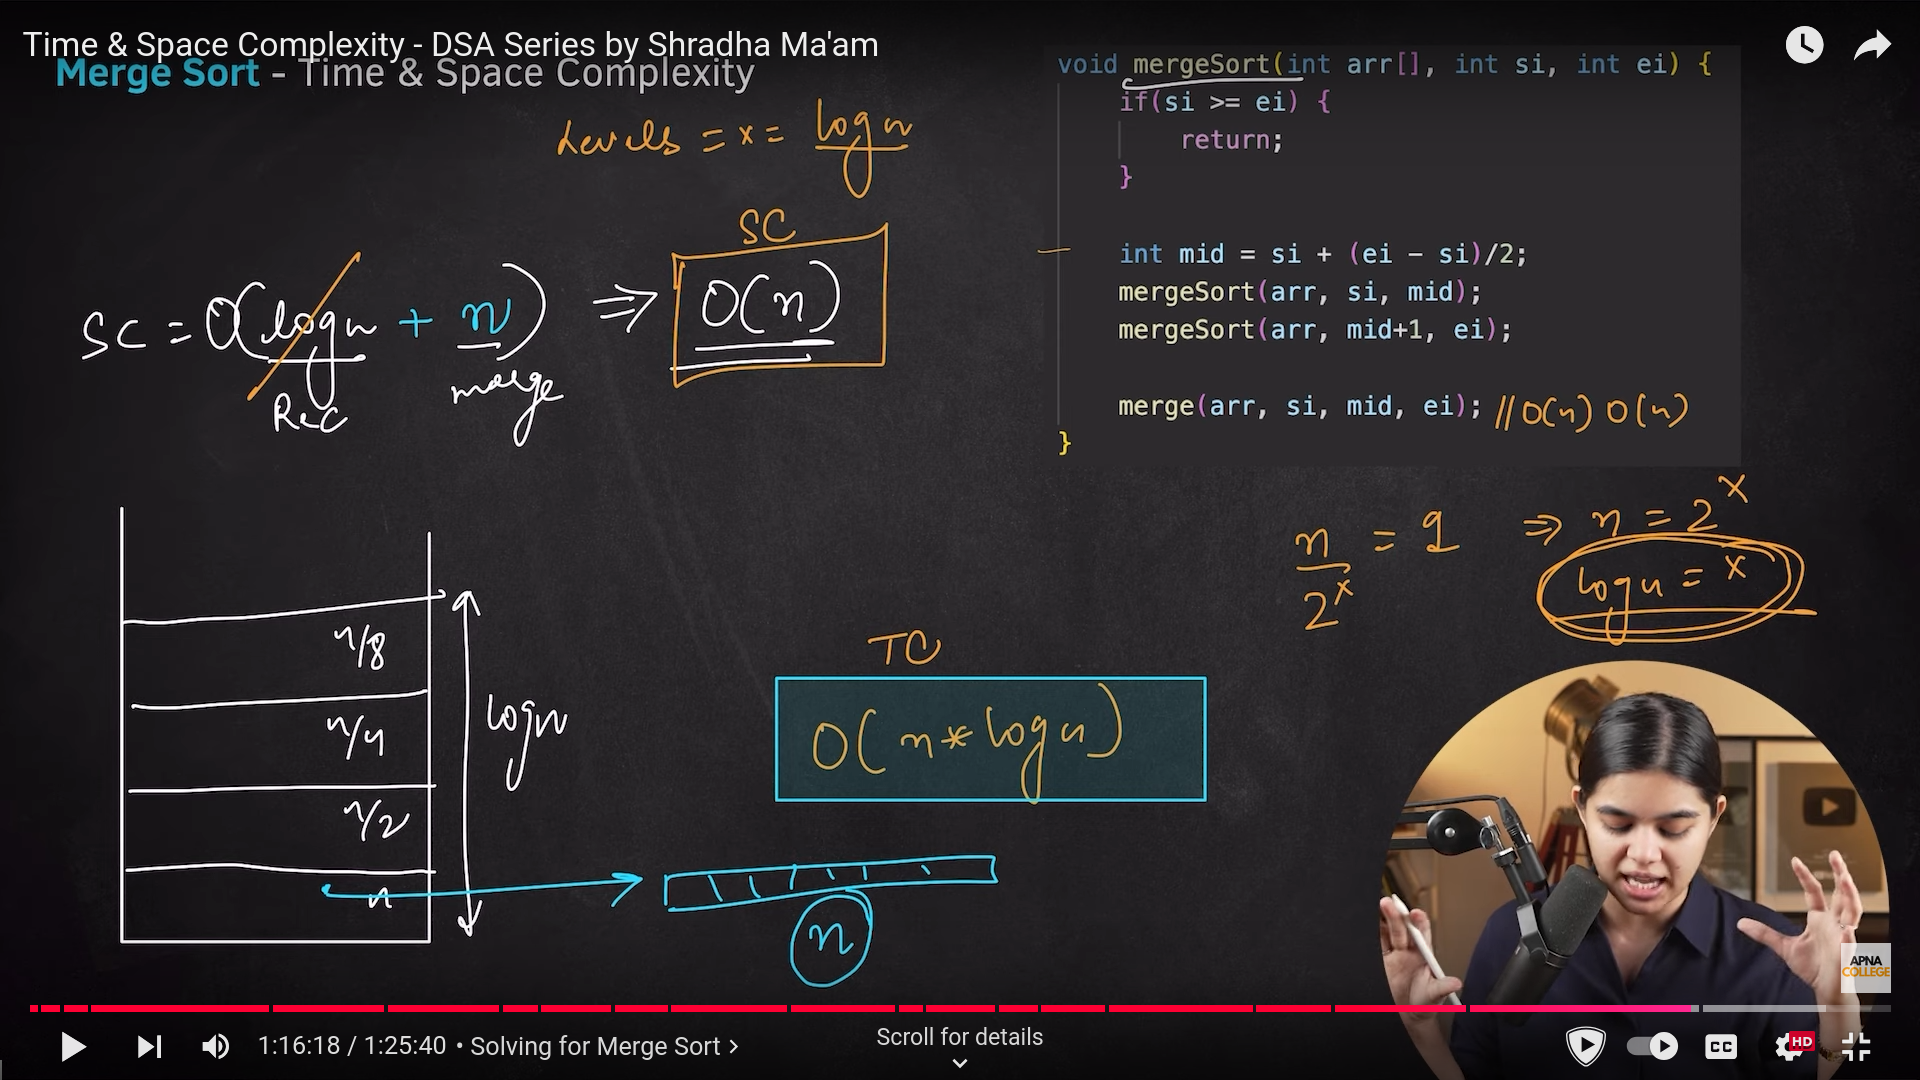 Time & Space Complexity - DSA Series by Shradha Ma'am
Merge Sort - Time & Space Complexity
Levels = x = log n
SC
SC = O(log n + n) ⇒ O(n)
Rec
merge
void mergeSort(int arr[], int si, int ei) {
if(si >= ei) {
return;
}
int mid = si + (ei - si)/2;
mergeSort(arr, si, mid);
mergeSort(arr, mid+1, ei);
merge(arr, si, mid, ei); //O(n) O(n)
}
n/2^x = 1 ⇒ n = 2^x
log n = x
n/8
n/4
n/2
n
log n
TC
O(n * log n)
n
APNA
COLLEGE
1:16:18 / 1:25:40 • Solving for Merge Sort >
Scroll for details
CC
HD